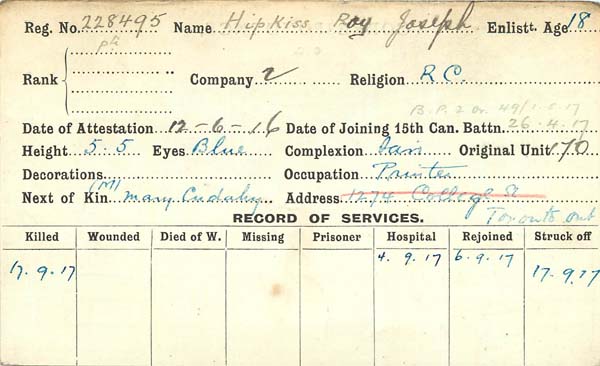 Reg. No. 228495 Name Hipkiss Roy Joseph Enlistt. Age 18
Pte
Rank Company 2 Religion R.C.
B.P. 2 Or. 49/1-5-17
Date of Attestation 12-6-16 Date of Joining 15th Can. Battn. 26.4.17
Height 5.5 Eyes Blue Complexion Fair Original Unit 170
Decorations Occupation Printer
(M)
Next of Kin Mary Address 1274 College St
Toronto Ont
RECORD OF SERVICES.
Killed Wounded Died of W. Missing Prisoner Hospital Rejoined Struck off
17.9.17 4.9.17 6.9.17 17.9.17